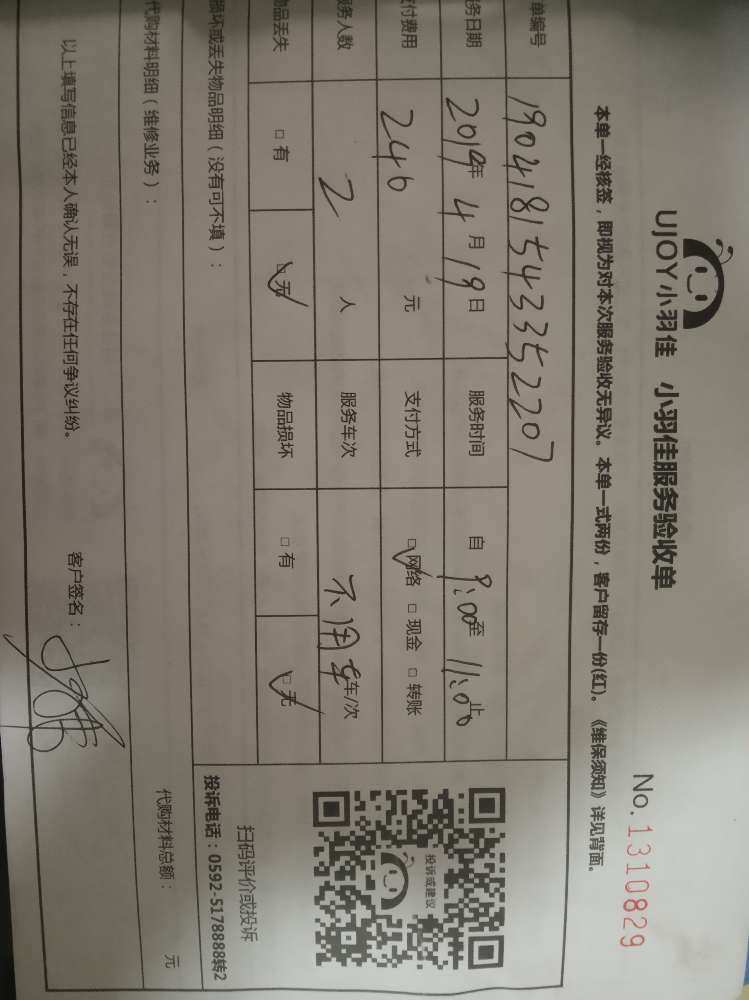 UJOY小羽佳 小羽佳服务验收单
No.1310829
本单一经核签，即视为对本次服务验收无异议。本单一式两份，客户留存一份(红)。《维保须知》详见背面。
单编号 1904181543352207
务日期 2019年4月19日 服务时间 自9:00至11:00止
付费用 246元 支付方式 □网络 □现金 □转账
务人数 2人 服务车次 不用车车/次
品丢失 □有 □无 物品损坏 □有 □无
投诉或建议
扫码评价或投诉
投诉电话：0592-5178888转2
损坏或丢失物品明细（没有可不填）：
代购材料明细（维修业务）：
代购材料总额： 元
以上填写信息已经本人确认无误，不存在任何争议纠纷。 客户签名：